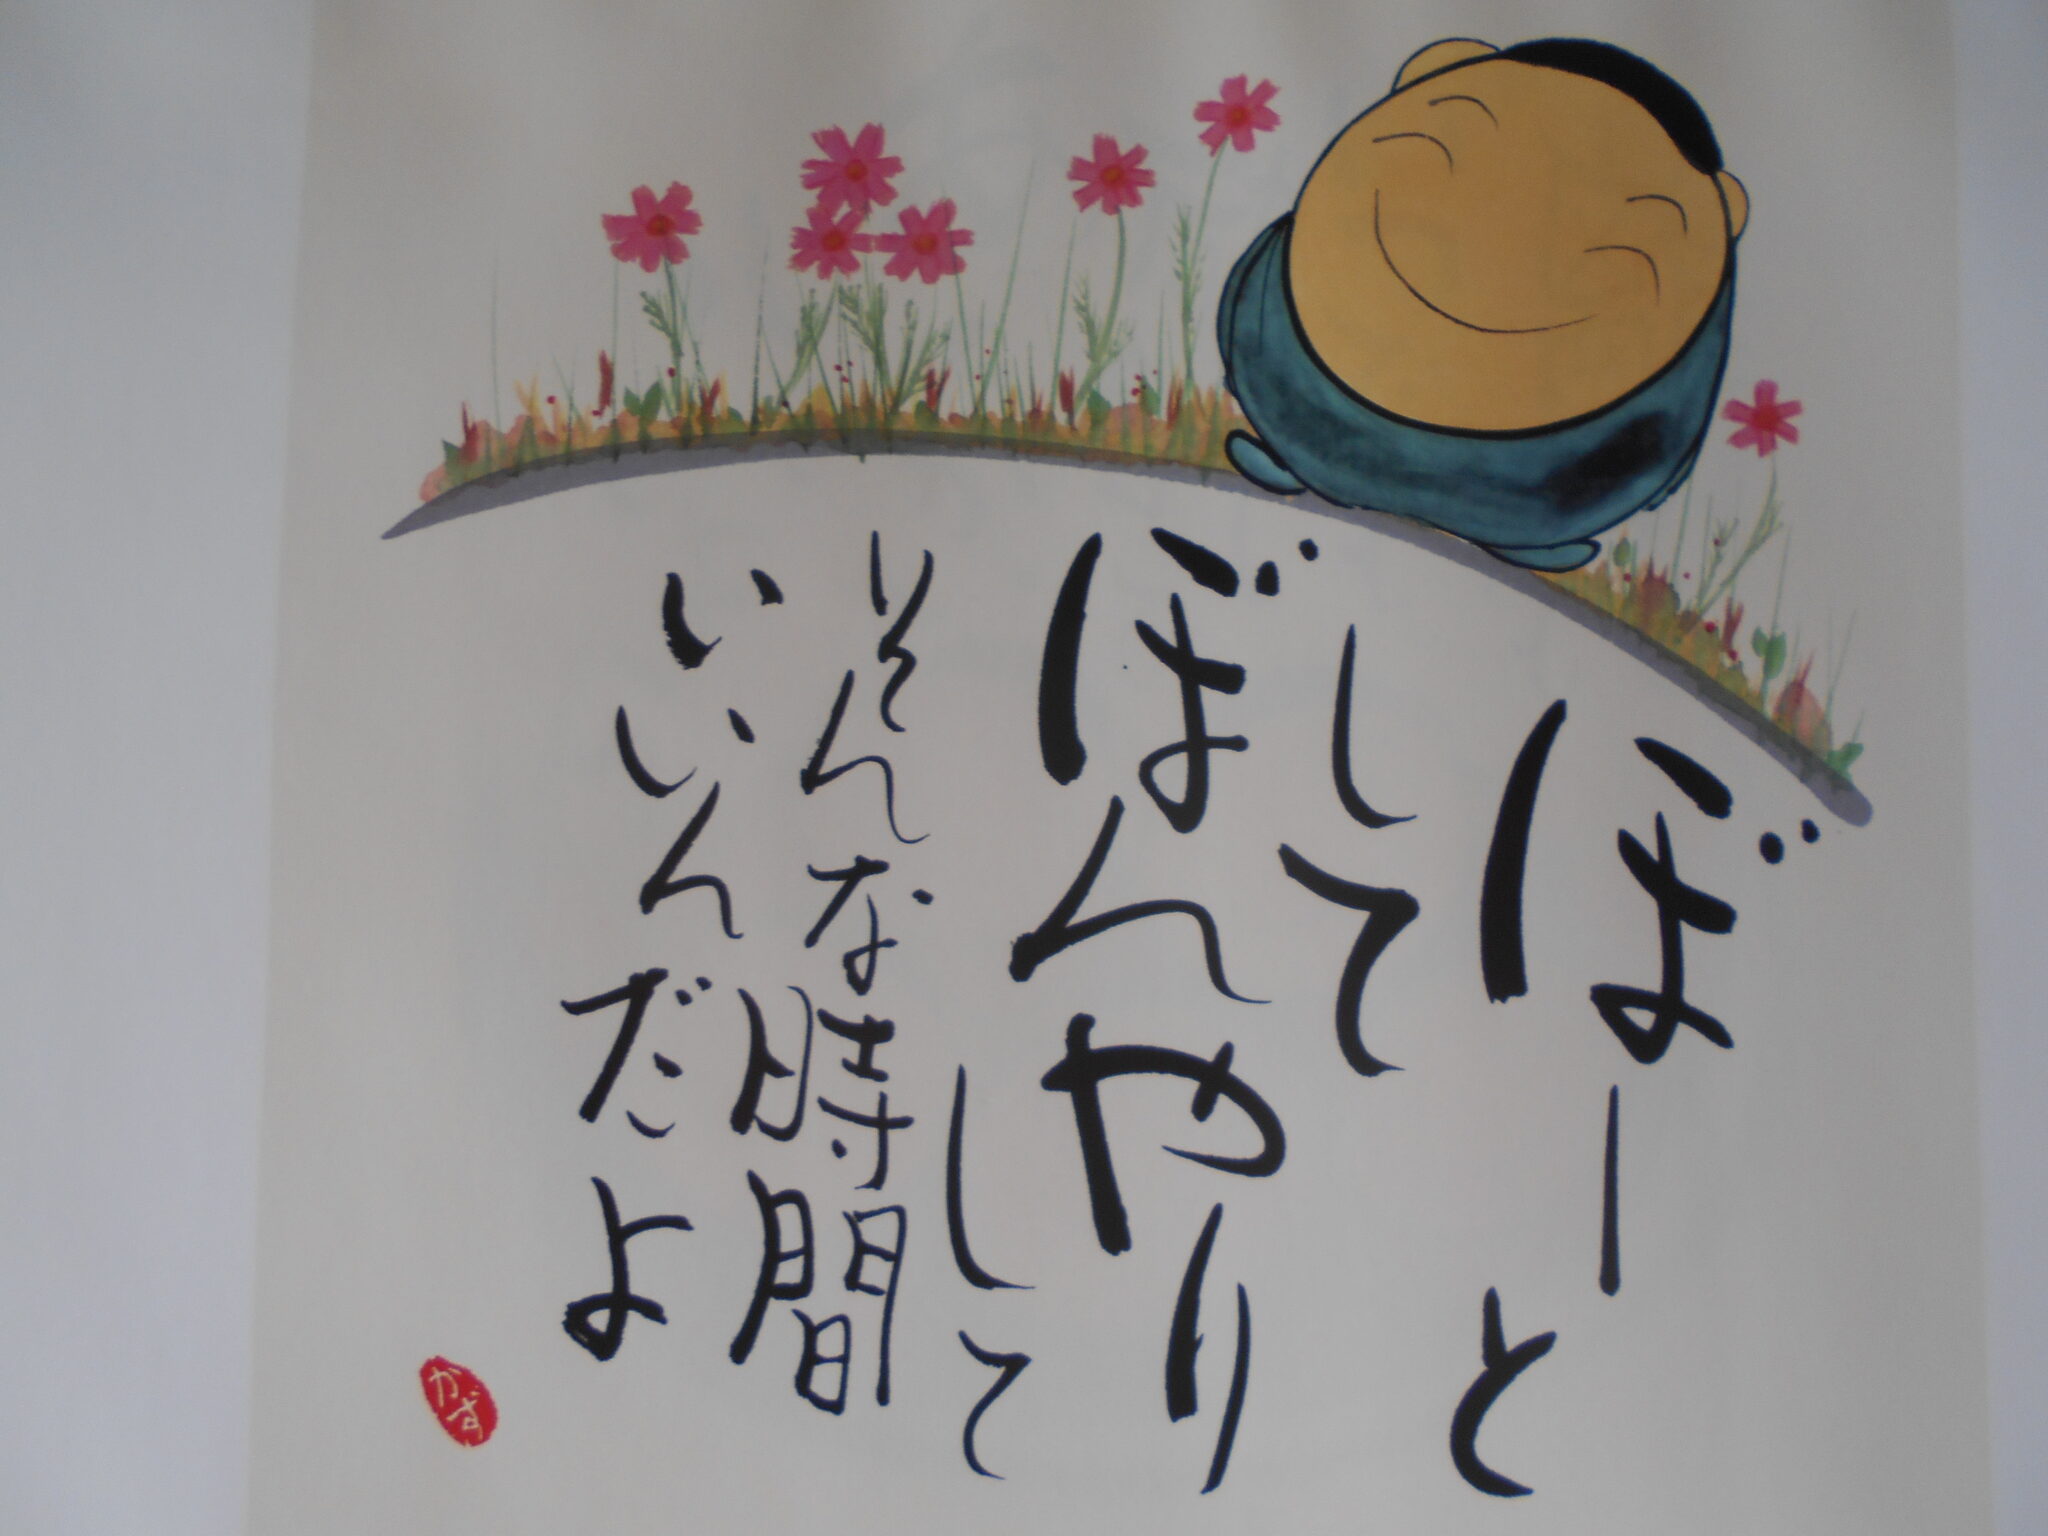 ぼーと
して
ぼんやり
して
そんな時間
いいんだよ
かず